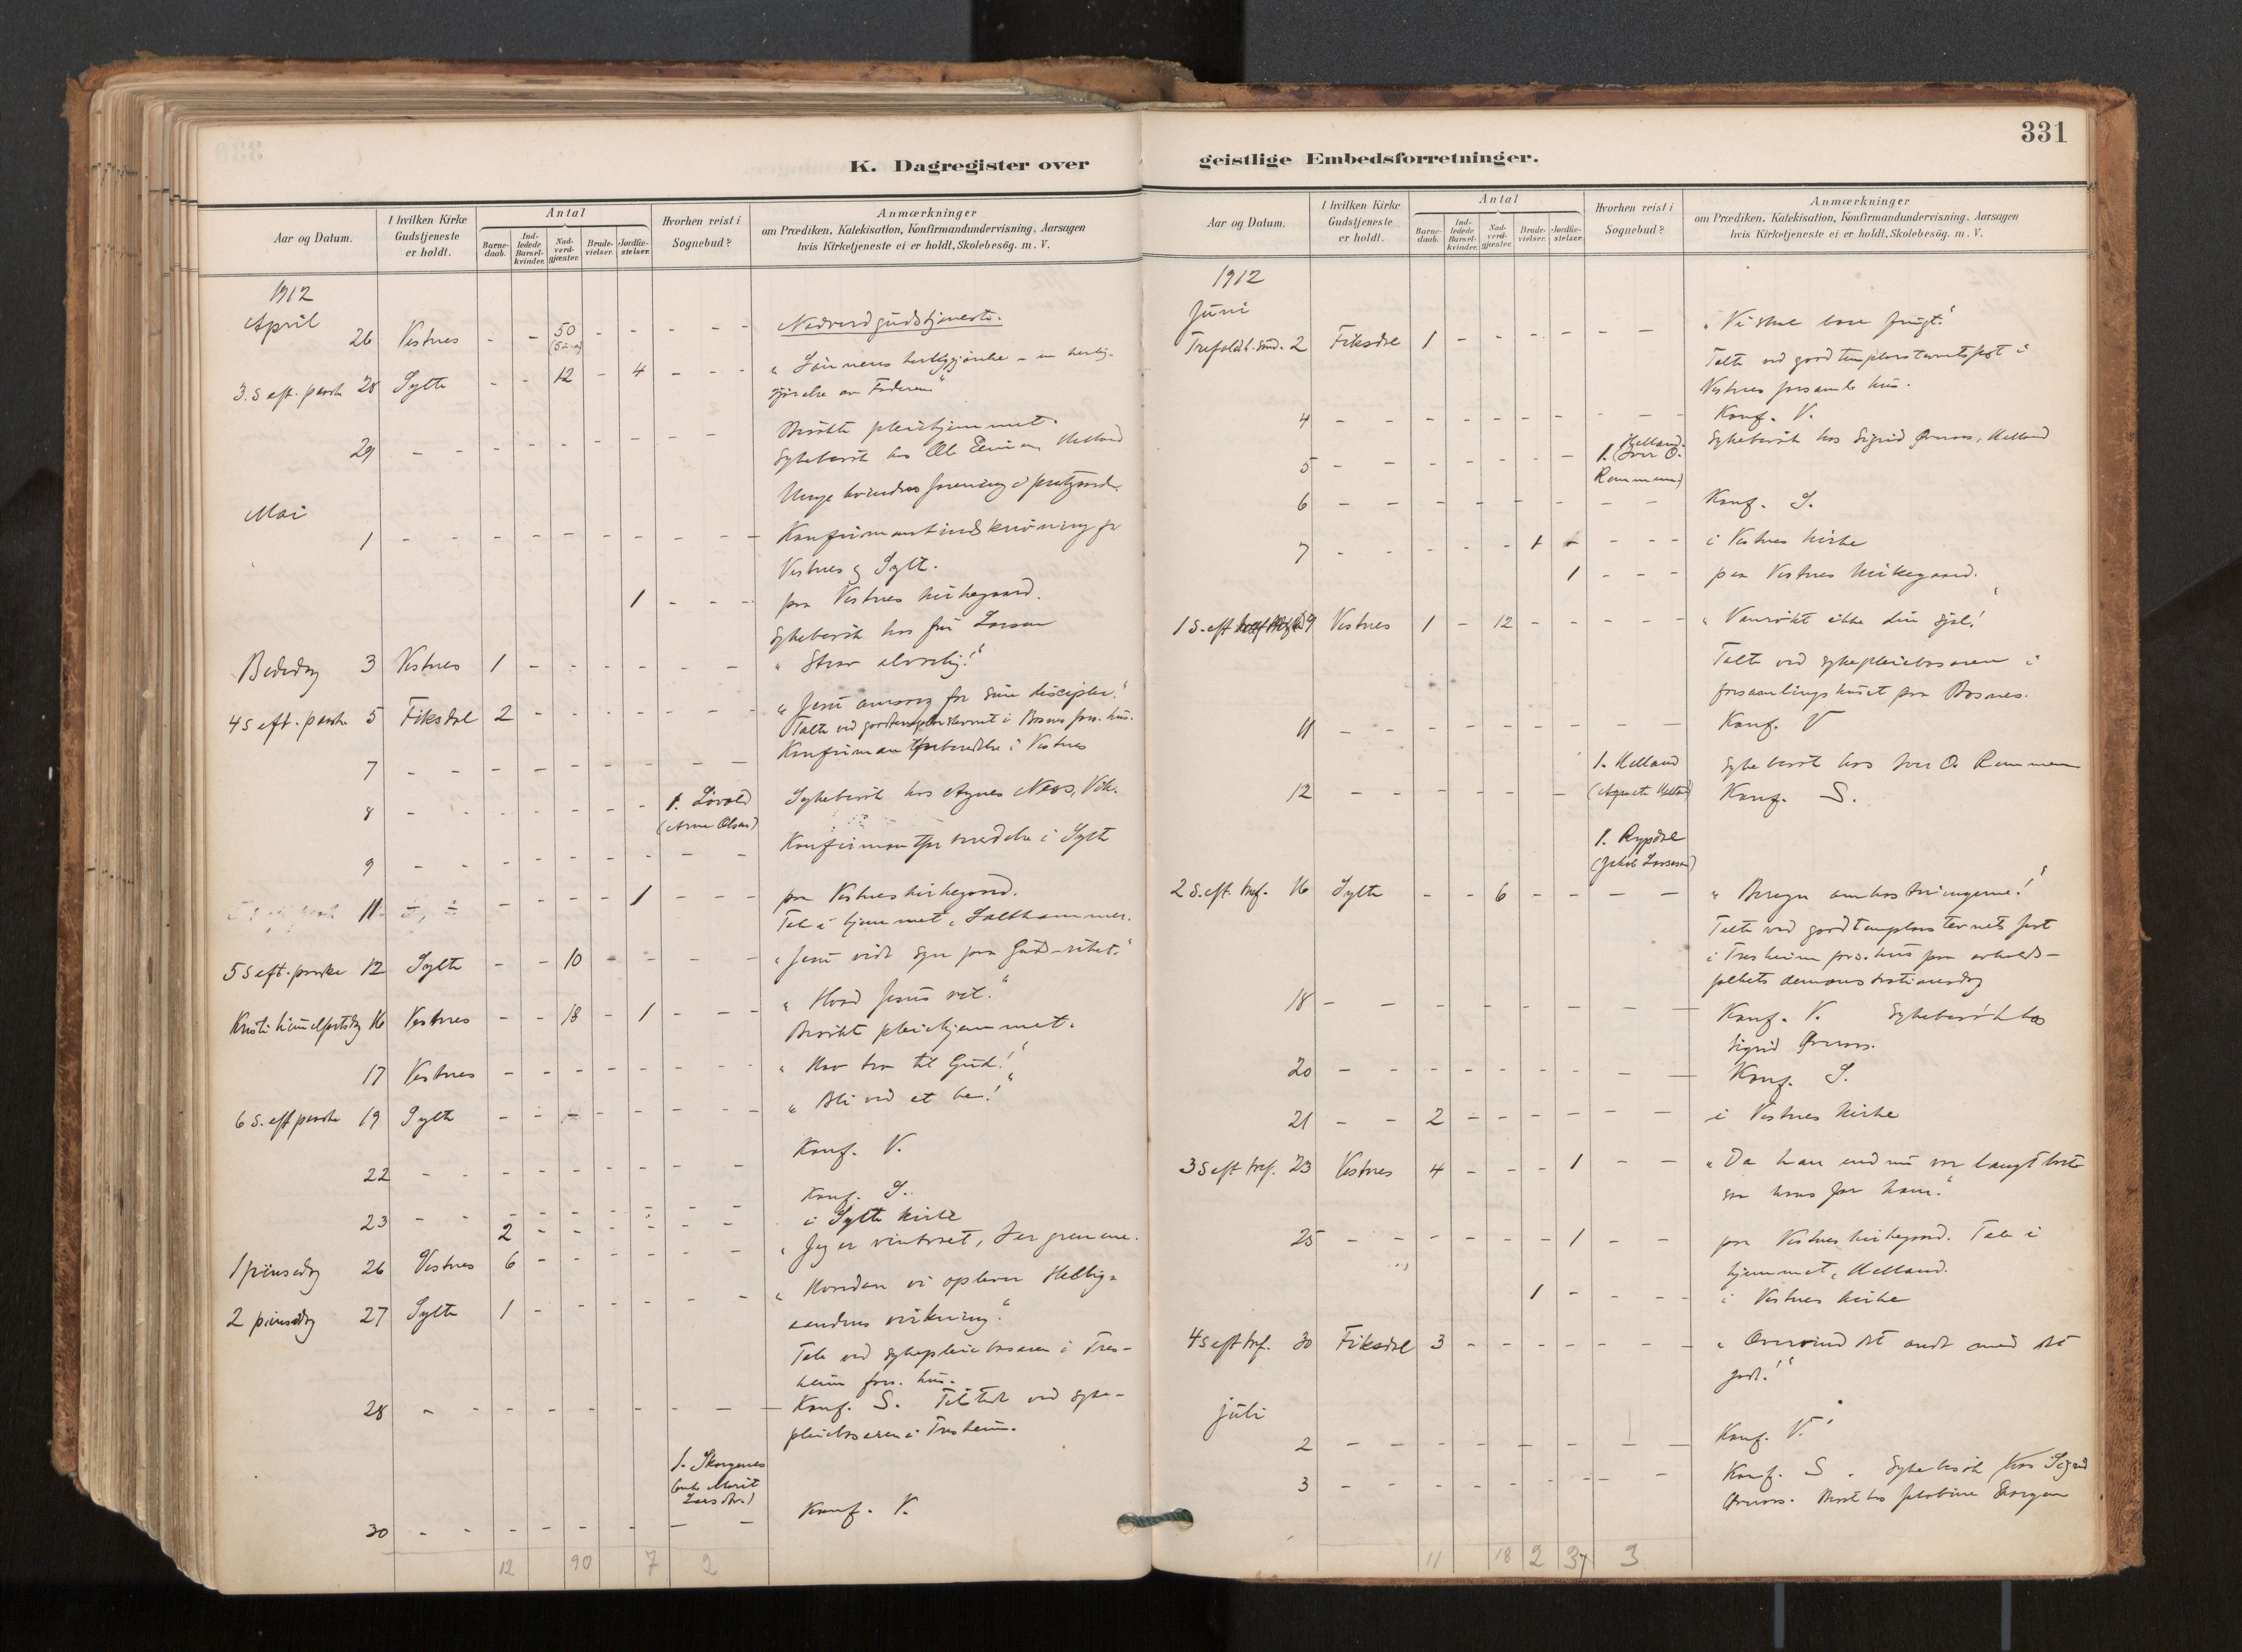 K. Dagregister over
Aar og Datum.
I hvilken Kirke Gudstjeneste er holdt.
Antal
Barne-daab.
Ind-ledede Barsel-kvinder.
Nad-verd-gjæster.
Brude-vielser.
Jordfæ-stelser.
Hvorhen reist i Sognebud?
Anmærkninger
om Prædiken, Katekisation, Konfirmandundervisning, Aarsagen
hvis Kirketjeneste ei er holdt, Skolebesög. m. V.
1912
April
26 Vestnes - - 50 - - - - - Nadverdgudstjeneste.
3. S eft. paaske 28 Sylte - - 12 - 4 - - - "Sønnens herliggjørelse - en herlig-
gjørelse av Faderen"
Besøkte pleiehjemmet.
29 - - - - - - - - Sykebesøk hos Ole Helland
Unge kvinders forening i prestgaarden.
Mai
1 - - - - - - - - - Konfirmantindskrivning for
Vestnes og Sylte.
1 - - - paa Vestnes kirkegaard.
Sykebesøk hos fru Larsen
Bededag 3 Vestnes 1 - - - - - - "Staa alvorlig!"
4 S eft. paaske 5 Fiksdal 2 - - - - - - - "Jesu omsorg for sine disciple."
Talte ved goodtemplarstevnet i Bosnes fors. hus.
7 - - - - - - - - - Konfirmantforberedelse i Vestnes
8 - - - - - - - 1. Løvold Sykebesøk hos Agnes Ness, Vik.
(Arne Olsen)
9 - - - - - - - - - Konfirmantforberedelse i Sylte
11 - - - - - - 1 - - - paa Vestnes kirkegaard.
Tale i hjemmet, Salthammer.
5 S eft. paaske 12 Sylte - - 10 - - - - "Jesu vidt syn paa Guds-riket."
Kristi himmelfartsdag 16 Vestnes - - 18 - 1 - - - "Hvad Jesus vil."
Besøkt pleiehjemmet.
17 Vestnes - - - - - - - - "Hav tro til Gud!"
6 S. eft paaske 19 Sylte - - - - - - - - "Bli ved at be!"
22 - - - - - - - - - Konf. V.
23 - - - - - - - - - Konf. S.
2 - - - - - - i Sylte kirke
1 pinsedag 26 Vestnes 6 - - - - - - "Jeg er vintræet, I er grenene.
2 pinsedag 27 Sylte 1 - - - - - - - "Hvordan vi oplever Hellig-
aandens virkning."
Tale ved sykepleiebasaren i Tres-
heim fors. hus.
28 - - - - - - - - - - Konf. S. Tilstede ved syke-
pleiebasaren i Tresheim.
1. Skorgenes
(enke Marit
Larsdtr.)
30 - - - - - - - - Konf. V.
12 90 7 2
331
geistlige Embedsforretninger.
Aar og Datum.
I hvilken Kirke Gudstjeneste er holdt.
Antal
Barne-daab.
Ind-ledede Barsel-kvinder.
Nad-verd-gjæster.
Brude-vielser.
Jordfæ-stelser.
Hvorhen reist i Sognebud?
Anmærkninger
om Prædiken, Katekisation, Konfirmandundervisning. Aarsagen
hvis Kirketjeneste ei er holdt, Skolebesög. m. V.
1912
Juni
Trefoldh. sønd. 2 Fiksdal 1 - - - - - - "Vi skal bære frugt."
Talte ved goodtemplarstevnets fest i
Vestnes forsaml. hus.
4 - - - - - - - - - Konf. V.
5 - - - - - - - 1. Helland. (Iver O. Remmem) Sykebesøk hos Sigrid Øveraas, Helland
6 - - - - - - - - - Konf. S.
7 - - - - - 1 - - - - i Vestnes kirke
1 - - - paa Vestnes kirkegaard.
1 S. eft 9 Vestnes 1 - 12 - - - - - "Vanrøkt ikke din sjæl!
Talte ved sykepleiebasaren i
forsamlingshuset paa Bosnes.
11 - - - - - - - - - Konf. V
1. Helland Sykebesøk hos Iver O. Remmem
12 - - - - - - (Agnete Helland) Konf. S.
1. Rypdal
(Jakob Larssen)
2 S. eft. tref. 16 Sylte - - 6 - - - - "Beregn omkostningerne!"
Talte ved goodtemplarstevnets fest
i Tresheim fors. hus paa avholds-
folkets demonstrationsdag
18 - - - - - - - - - Konf. V. Sykebesøk hos
Sigrid Øveraas.
20 - - - - - - - - - Konf. S.
21 - - 2 - - - - - - i Vestnes kirke
3 S eft tref. 23 Vestnes 4 - - - 1 - - "Da han endnu var langt borte
saa hans far ham."
25 - - - - - - 1 - - paa Vestnes kirkegaard. Tale i
hjemmet, Helland.
1 - - - - i Vestnes kirke
4 S eft tref. 30 Fiksdal 3 - - - - - - - "Overvind det onde med det
gode!"
juli
2 - - - - - - - - - Konf. V.
3 - - - - - - - - - Konf. S. Sykebesøk hos Sigrid
Øveraas.
11 18 2 3 3